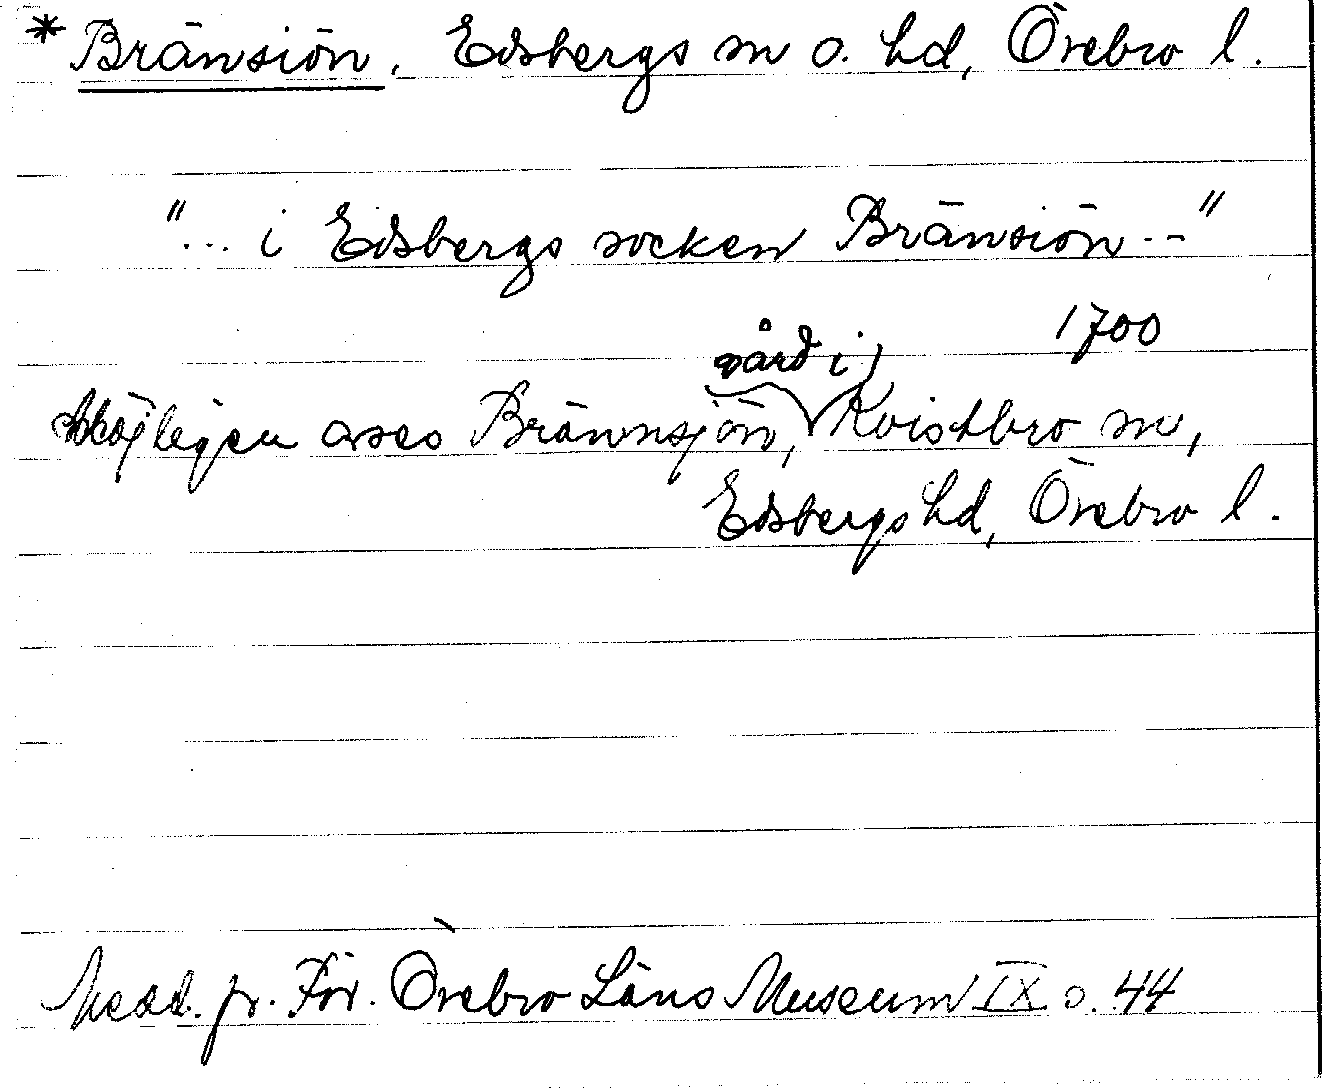 * Bränsiön, Edsbergs sn o. hd, Örebro l.
"... i Edsbergs socken Bränsiön --"
1700
gård i
Möjligen avses Brännsjön, Kvistbro sn,
Edsbergs hd, Örebro l.
Medd. fr. För. Örebro Läns Museum IX s. 44